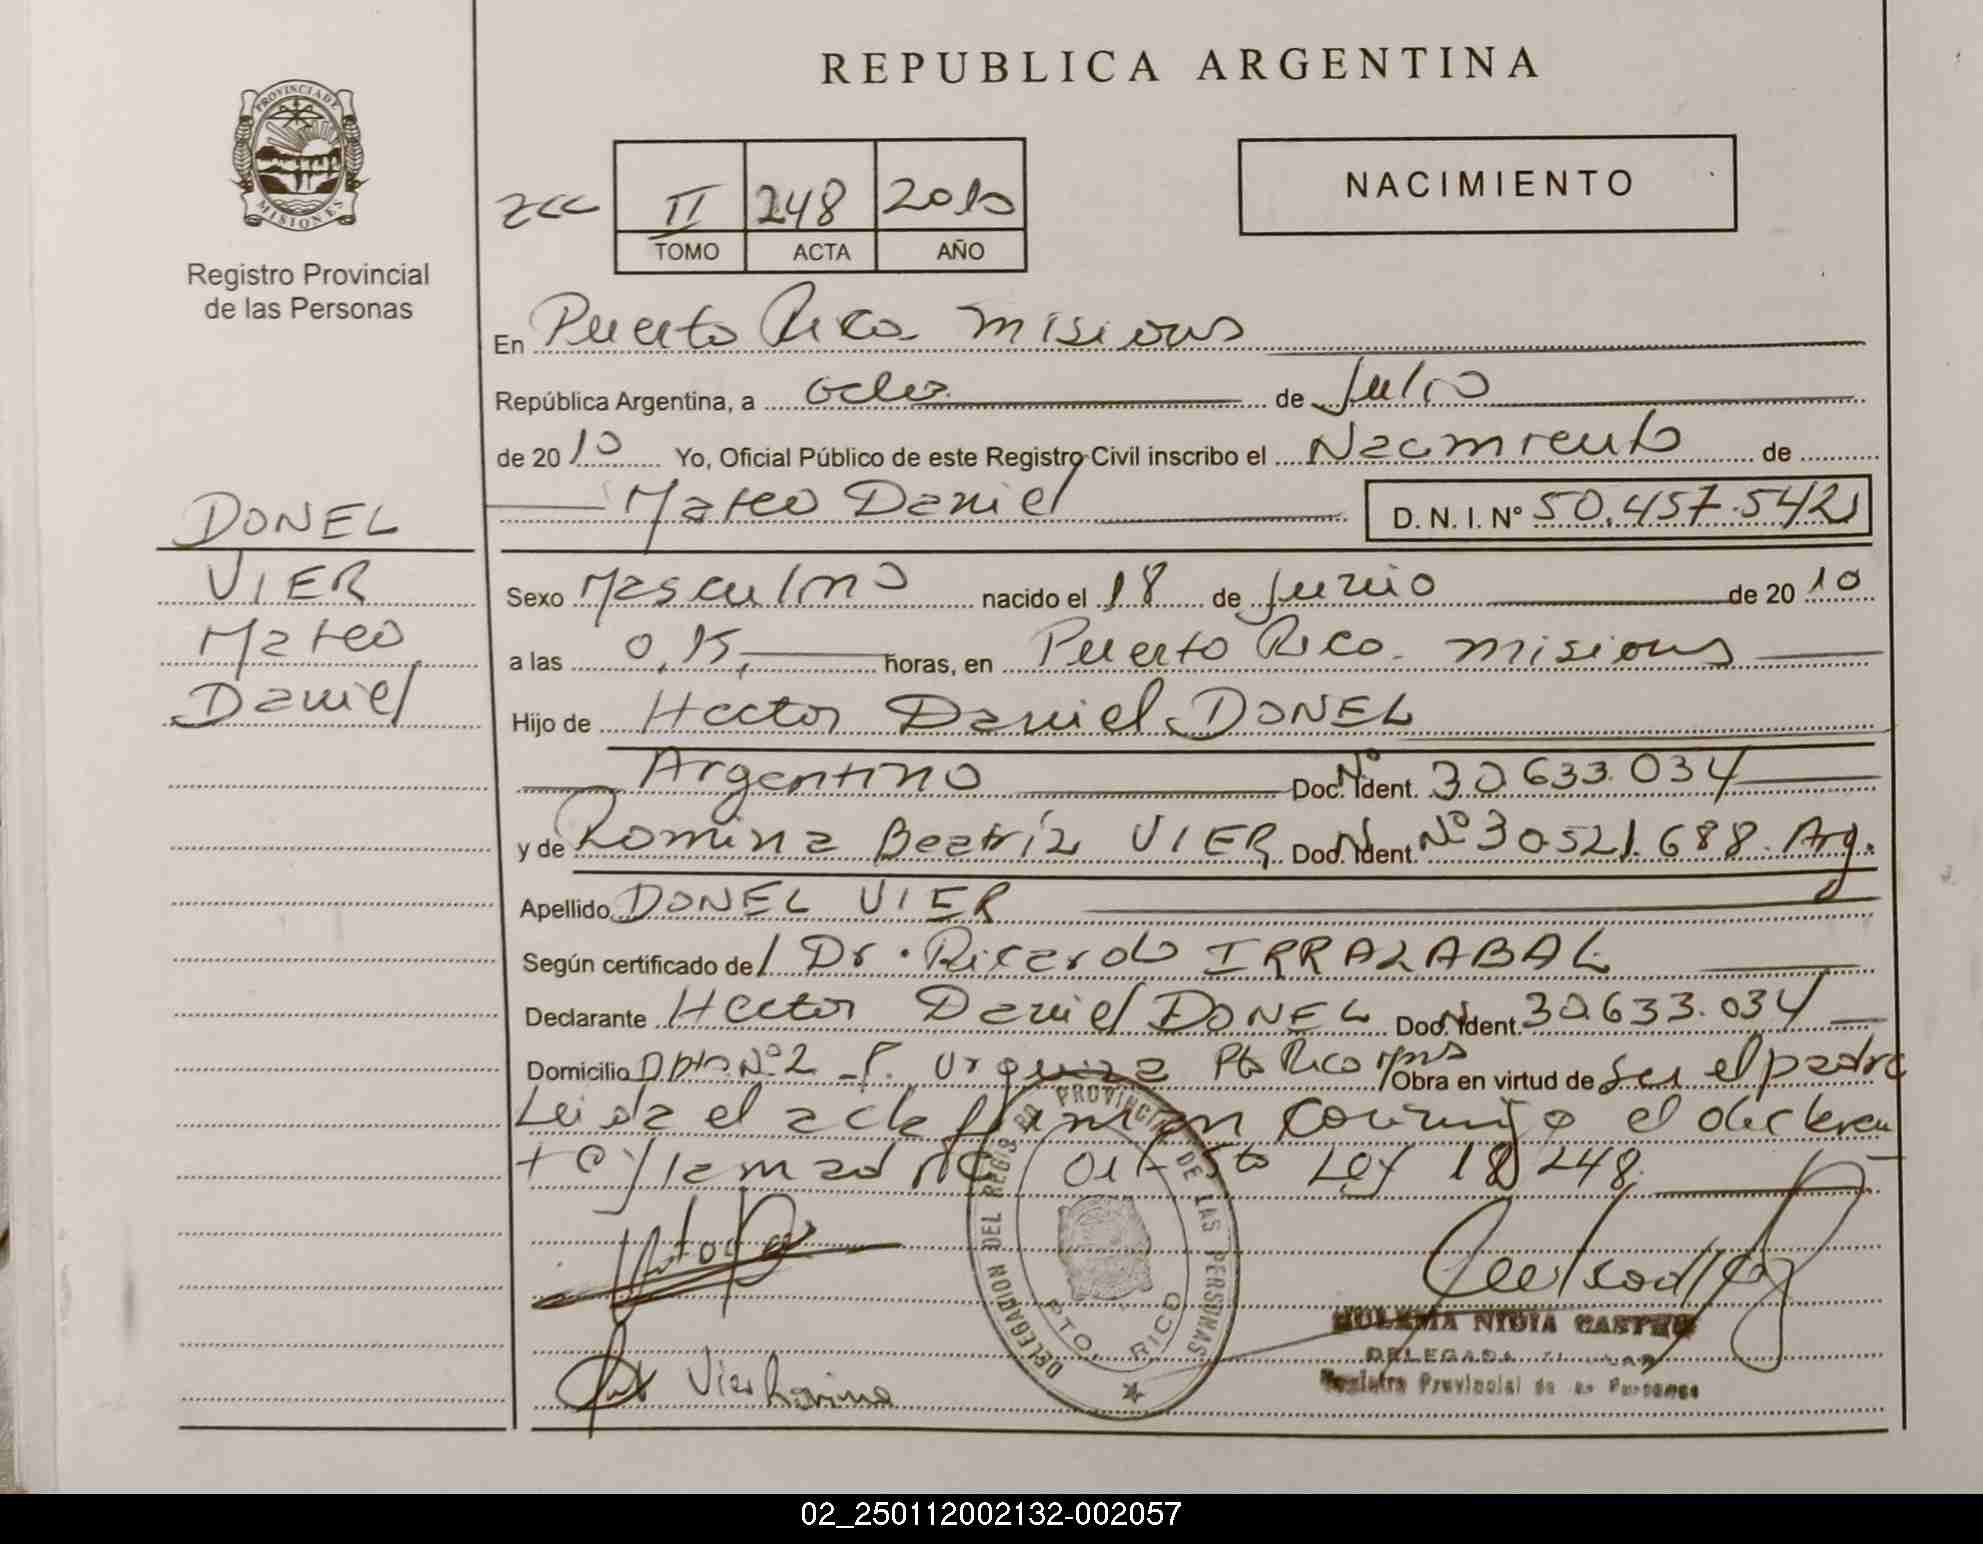 REPUBLICA ARGENTINA
PROVINCIA DE
MISIONES
Registro Provincial
de las Personas
NACIMIENTO
II 248 2010
TOMO ACTA AÑO
En Puerto Rico Misiones
República Argentina, a ocho de Julio
de 2010 Yo, Oficial Público de este Registro Civil inscribo el Nacimiento de
Mateo Daniel D. N. I. N° 50.457.542
DONEL
VIER
Mateo
Daniel
Sexo Masculino nacido el 18 de Junio de 2010
a las 0,15, horas, en Puerto Rico. Misiones
Hijo de Hector Daniel DONEL
Argentino Doc. Ident. N° 30.633.034
y de Romina Beatríz VIER Doc. Ident. N° 30.521.688. Arg.
Apellido DONEL VIER
Según certificado del Dr. Ricardo IRRAZABAL
Declarante Hector Daniel DONEL Doc. Ident. 30.633.034
Domicilio N°2 Urquiza Pto Rico Mns Obra en virtud de ser el padre
Leida el acta firman conmigo el declaran
te y la madre Ley 18248.
DELEGACION DEL REGISTRO PROVINCIAL DE LAS PERSONAS
PTO. RICO
Vier Romina
NIDIA CASTRO
DELEGADA
Registro Provincial de las Personas
02_250112002132-002057